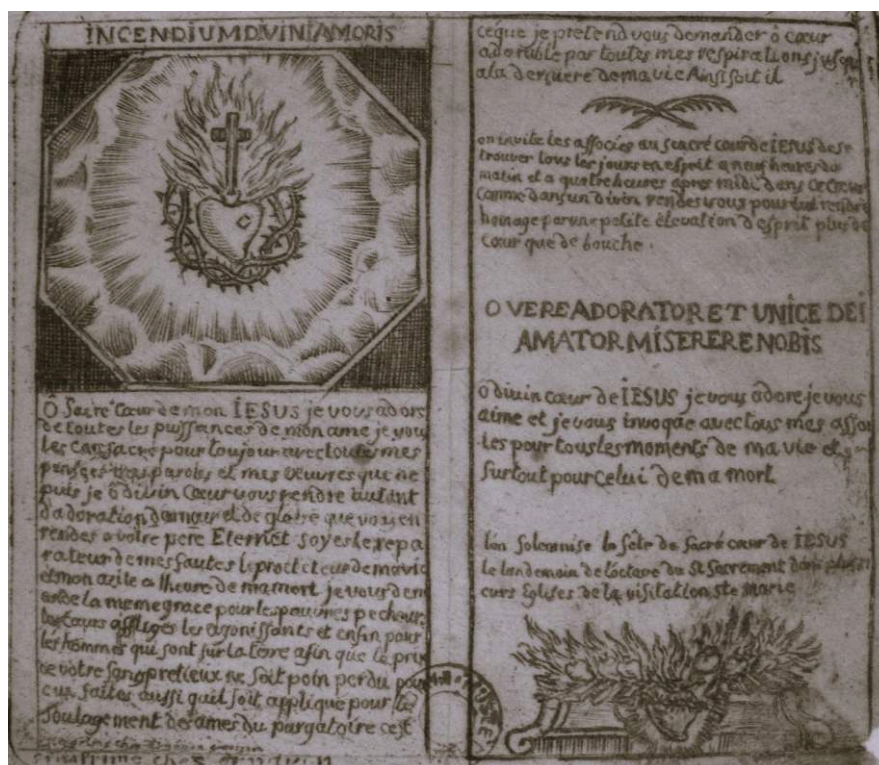 INCENDIUM DIVINI AMORIS
Ô Sacré Cœur de mon IESUS je vous adore
de toutes les puissances de mon ame je vous
les consacre pour toujour avec toutes mes
pensées mes paroles et mes œuvres que ne
puis je ô divin Cœur vous rendre autant
d adoration damour et de gloire que vous en
rendes a votre pere Eternel soyes le repa
rateur de mes fautes le protecteur de ma vie
et mon azile a lheure de ma mort je vous dem
ande la meme grace pour les pauvres pecheurs
les cœurs affligés les agonissants et enfin pour
les hommes qui sont sur la terre afin que le prix
de votre sang pretieux ne soit poin perdu pour
eux faites aussi quil soit appliqué pour le
soulagement des ames du purgatoire cest
simprime chez
ceque je pretend vous demander ô cœur
adorable par toutes mes respirations jusqu
a la derniere de ma vie Ainsi soit il
on invite les associés au sacré cœur de IESUS de se
trouver tous les jours en esprit a neuf heures du
matin et a quatre heures apres midi dans ce Cœur
comme dans un divin rendes vous pour lui rendre
homage par une petite élévation d'esprit plus de
Cœur que de bouche .
O VERE ADORATOR ET UNICE DEI
AMATOR MISERERE NOBIS
Ô divin cœur de IESUS je vous adore je vous
aime et je vous invoque avec tous mes assos
iés pour tous les moments de ma vie et
surtout pour celui de ma mort
lon solemnise la fête du Sacré cœur de IESUS
le landemain de l'octave du St Sacrement dans plusi
eurs Eglises de la visitation ste Marie